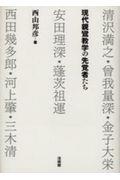 現代親鸞教学の先覚者たち
清沢満之・曾我量深・金子大栄
安田理深・蓬茨祖運
西田幾多郎・河上肇・三木清
西山邦彦・著
法藏館